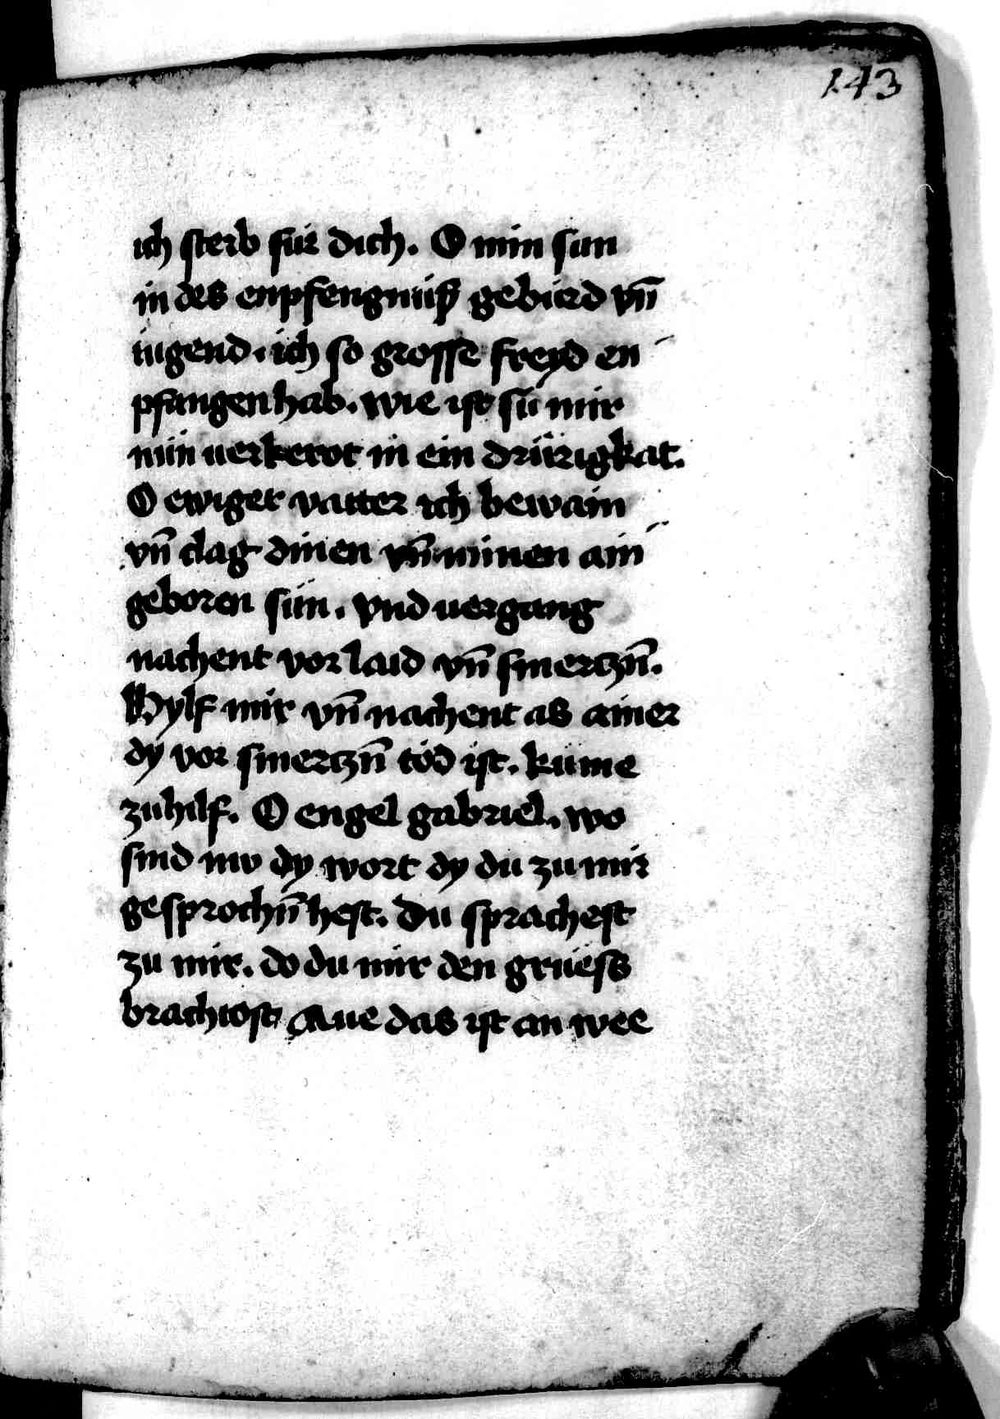 143
ich sterb für dich. O min sun
in des enpfengnüß gebürd vn̄
iugend. ich so grosse freyd en
pfangen hab. wie ist su mir
nün uerkerot in ein drürigkat.
O ewiger vatter ich bewain
vn̄ clag dinen vn̄ minen ain
geboren sün. vnd uergang
nachent vor laid vn̄ smerczn̄.
Hylf mir vn̄ nachent as ainer
dy vor smerczn̄ tod ist. kume
zuhilf. O engel gabriel. wo
sind nw dy wort dy du zu mir
gesprochn̄ hest. Du sprachest
zu mir. do du mir den gruess
brachtost Aue das ist an wee